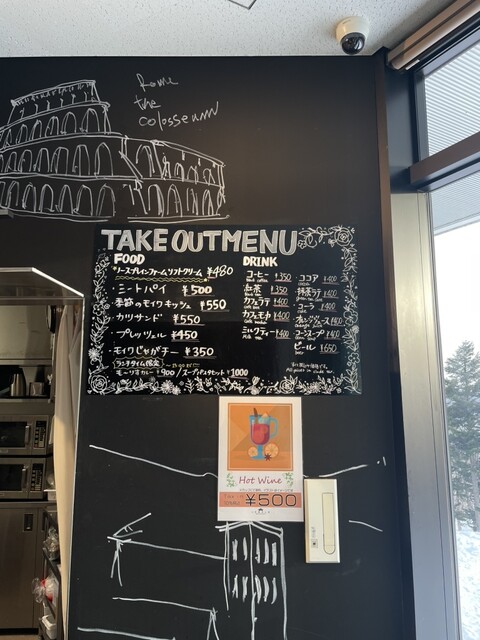 Rome
the
Colosseum
TAKE OUT MENU
FOOD
ソフトクリーム ¥480
・ミートパイ ¥500
季節のモイワキッシュ ¥550
・カツサンド ¥550
・プレッツェル ¥450
・モイワじゃがチー ¥350
ランチタイム限定
¥900 / スープパスタセット ¥1000
DRINK
コーヒー ¥350
紅茶 ¥350
カフェラテ ¥400
カフェモカ ¥400
ミルクティー ¥400
・ココア ¥400
・抹茶ラテ ¥400
・コーラ ¥400
オレンジジュース ¥400
コーンスープ ¥400
ビール ¥650
Hot Wine
¥500